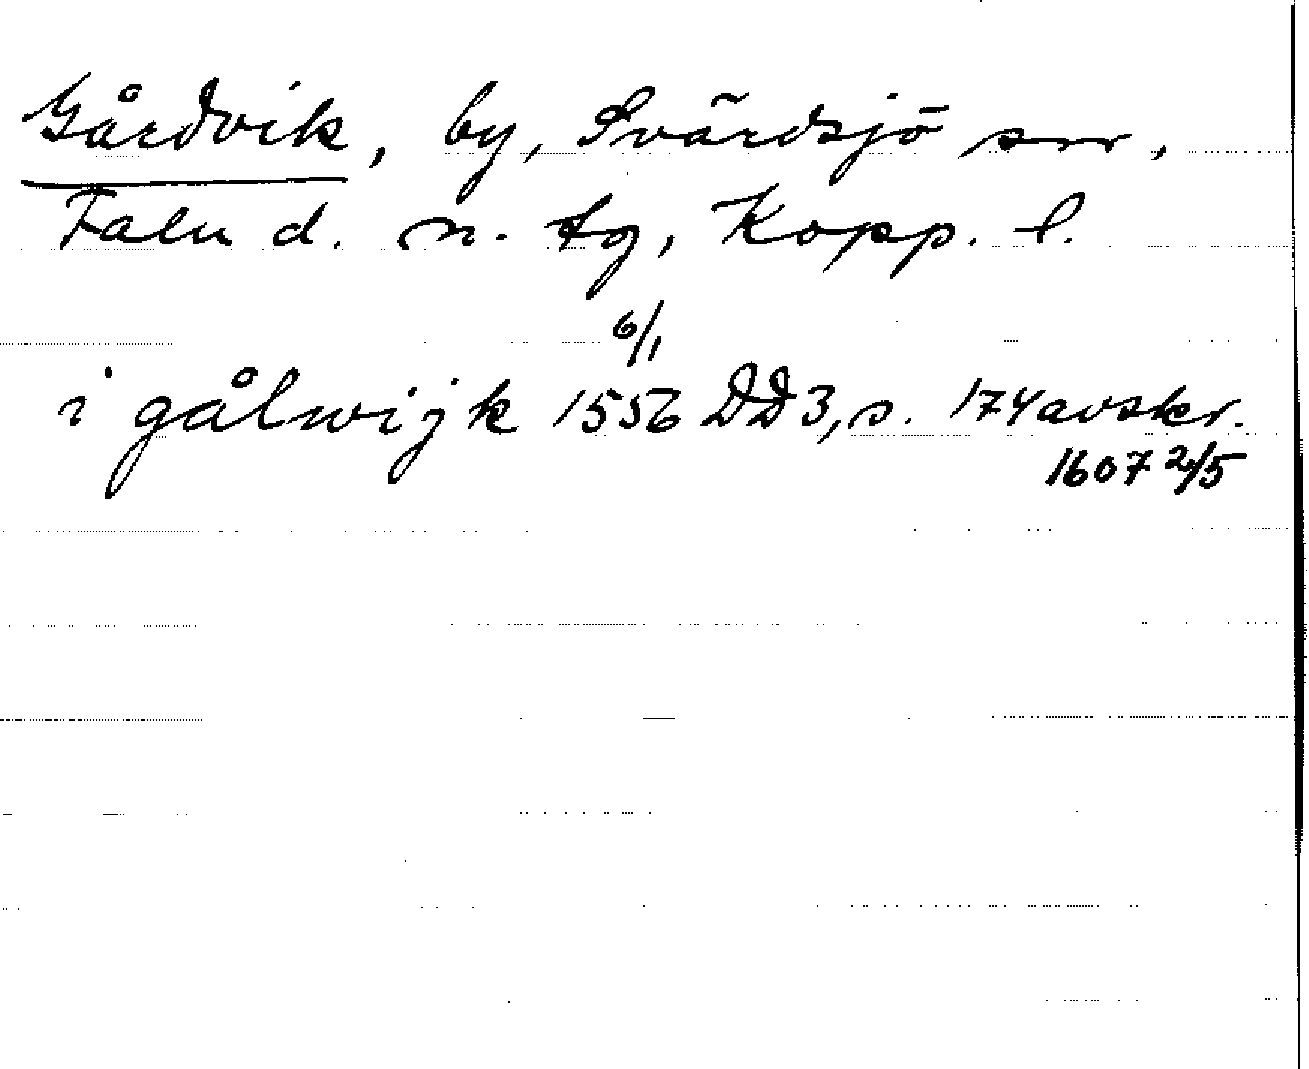 Gårdvik, by, Svärdsjö sn,
Falu d. n. tg, Kopp. l.
6/1
i gålwijk 1556 DD3, s. 174 avskr.
1607 2/5